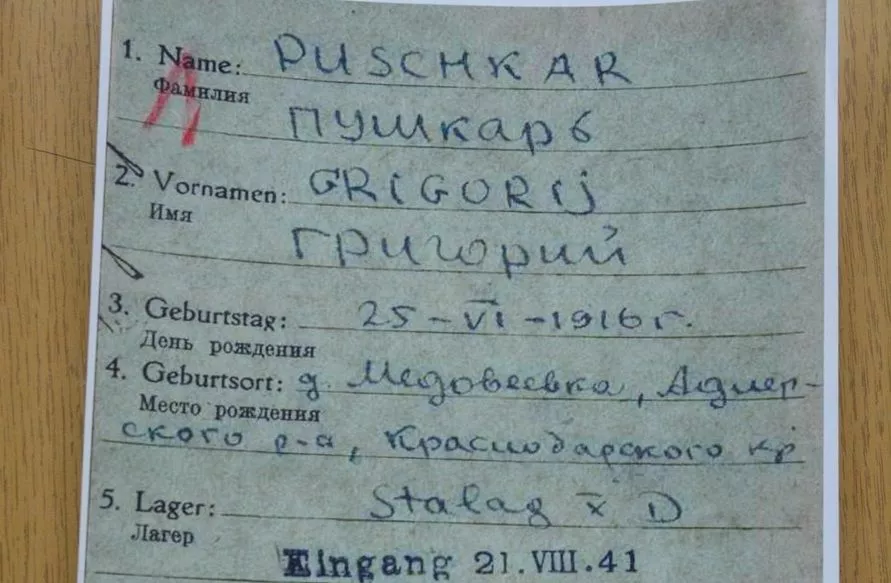 1. Name: PUSCHKAR
Фамилия
Пушкарь
2. Vornamen: GRIGORIJ
Имя
Григорий
3. Geburtstag: 25-VI-1916г.
День рождения
4. Geburtsort: д. Медовеевка, Адлер-
Место рождения
ского р-а, Краснодарского кр
5. Lager: Stalag X D
Лагер
Eingang 21.VIII.41